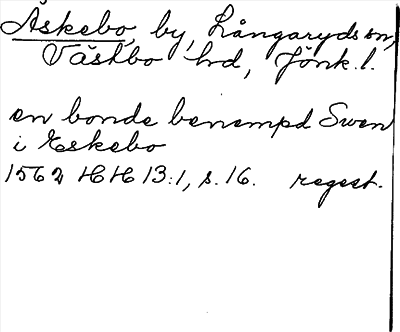 Äskebo, by, Långaryds sn,
Västbo hd, Jönk. l.
en bonde benempd Swen
i Eskebo
1562 HH 13:1, s. 16. regest.